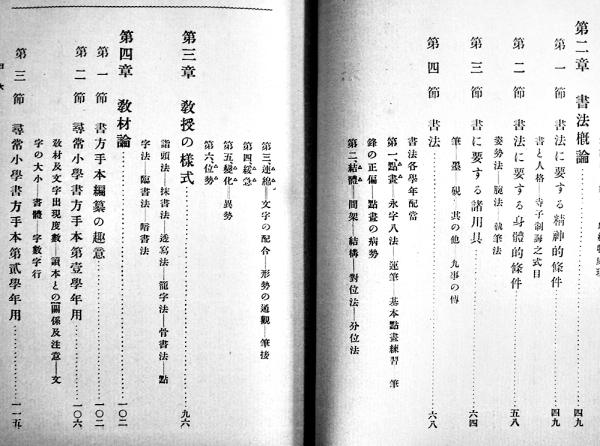 第二章 書法概論……四九
第一節 書法に要する精神的條件……四九
書と人格 寺子制誨之式目
第二節 書法に要する身體的條件……五八
姿勢法 腕法 執筆法
第三節 書に要する諸用具……六四
筆 墨 硯 其の他 九事の傳
第四節 書法……六八
書法各學年配當
第一、點畫―永字八法―運筆―基本點畫練習 筆
鋒の正偏―點畫の病勢
第二、結體―間架―結構―對位法―分位法
第三、連絡―文字の配合―形勢の通觀―筆接
第四、緩急
第五、變化―異勢
第六、位勢
第三章 敎授の樣式……九六
譜頭法―抹書法―透寫法―籠字法―骨書法―點
字法―臨書法―暗書法
第四章 敎材論……一〇二
第一節 書方手本編纂の趣意……一〇二
第二節 尋常小學書方手本第壹學年用……一〇六
敎材及文字出現度數―讀本との關係及注意―文
字の大小―書體―字數字行
第三節 尋常小學書方手本第貳學年用……一一五